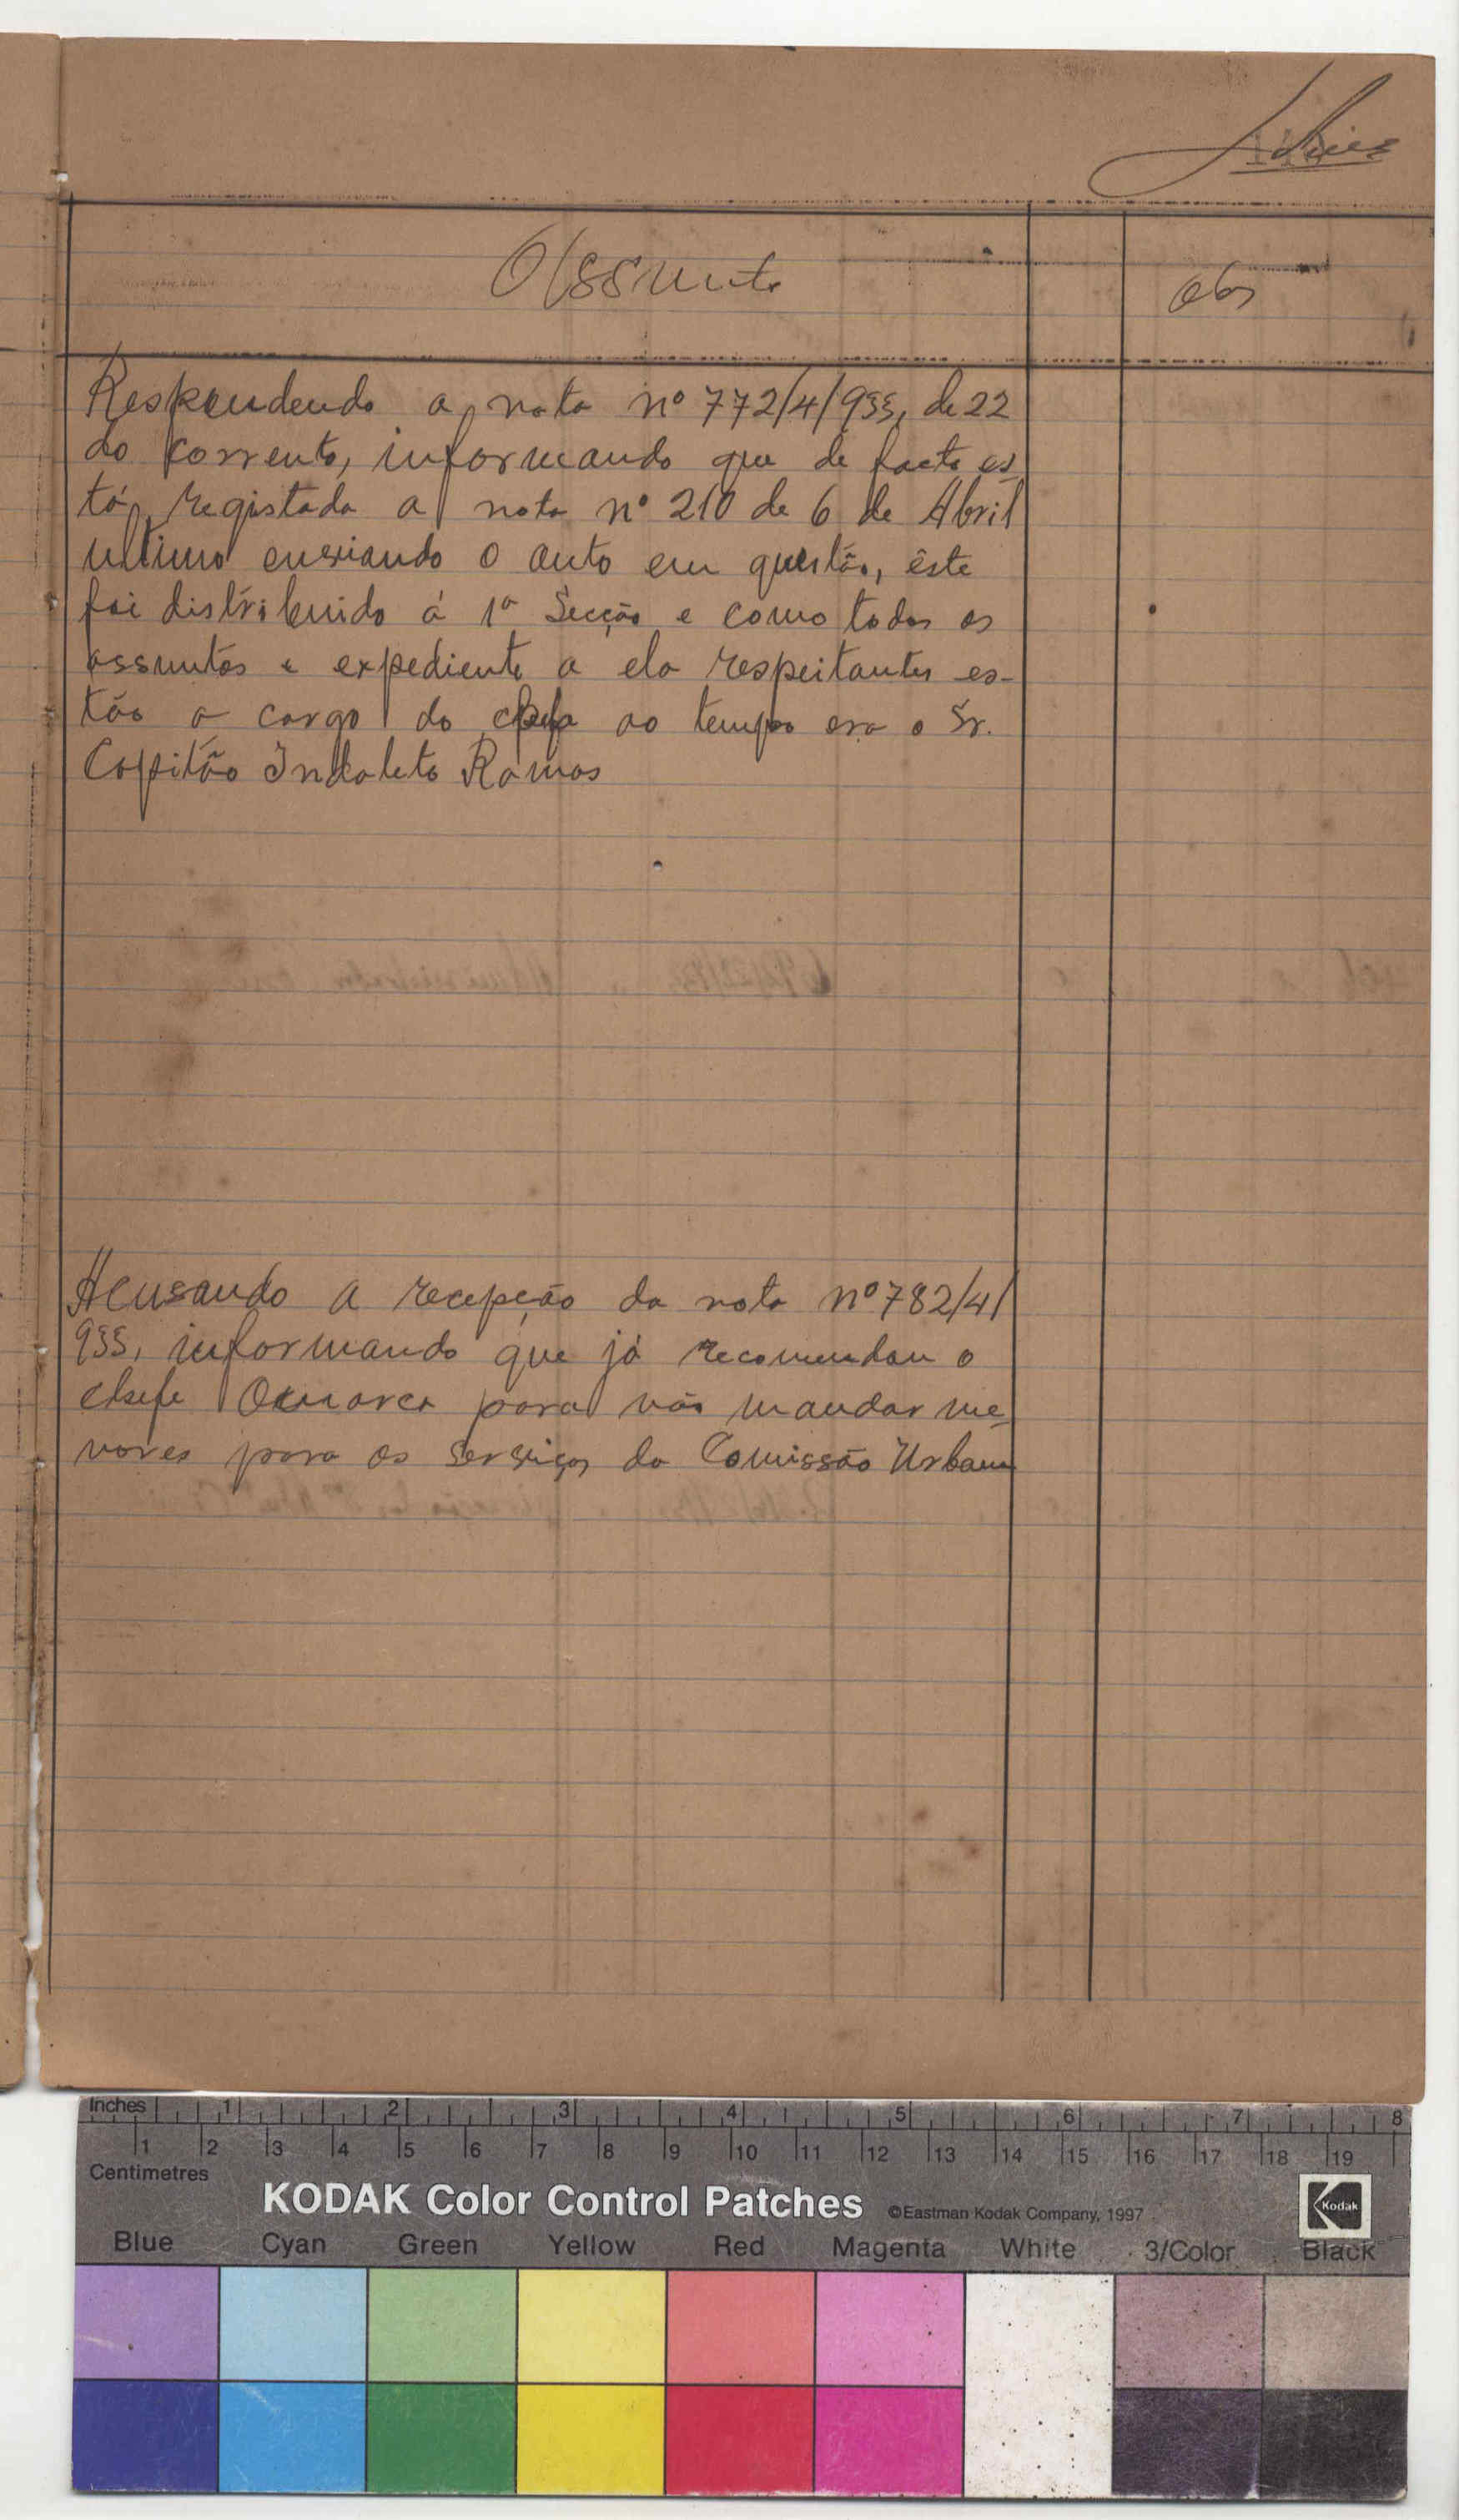 Assunto
Obs
Respondendo a nota nº 772/4/933, de 22
do corrente, informando que de facto es
tá registada a nota nº 210 de 6 de Abril
ultimo enviando o auto em questão, êste
foi distribuido á 1ª Secção e como todos os
assuntos e expediente a ela respeitantes es-
tão a cargo do chefe ao tempo era o Sr.
Capitão Indaleto Ramos
Acusando a recepção da nota nº 782/4/
933, informando que já recomendou o
chefe para não mandar me
nores para os serviços da Comissão Urbana
Inches 1 2 3 4 5 6 7 8
1 2 3 4 5 6 7 8 9 10 11 12 13 14 15 16 17 18 19
Centimetres
KODAK Color Control Patches ©Eastman Kodak Company, 1997 Kodak
Blue Cyan Green Yellow Red Magenta White 3/Color Black